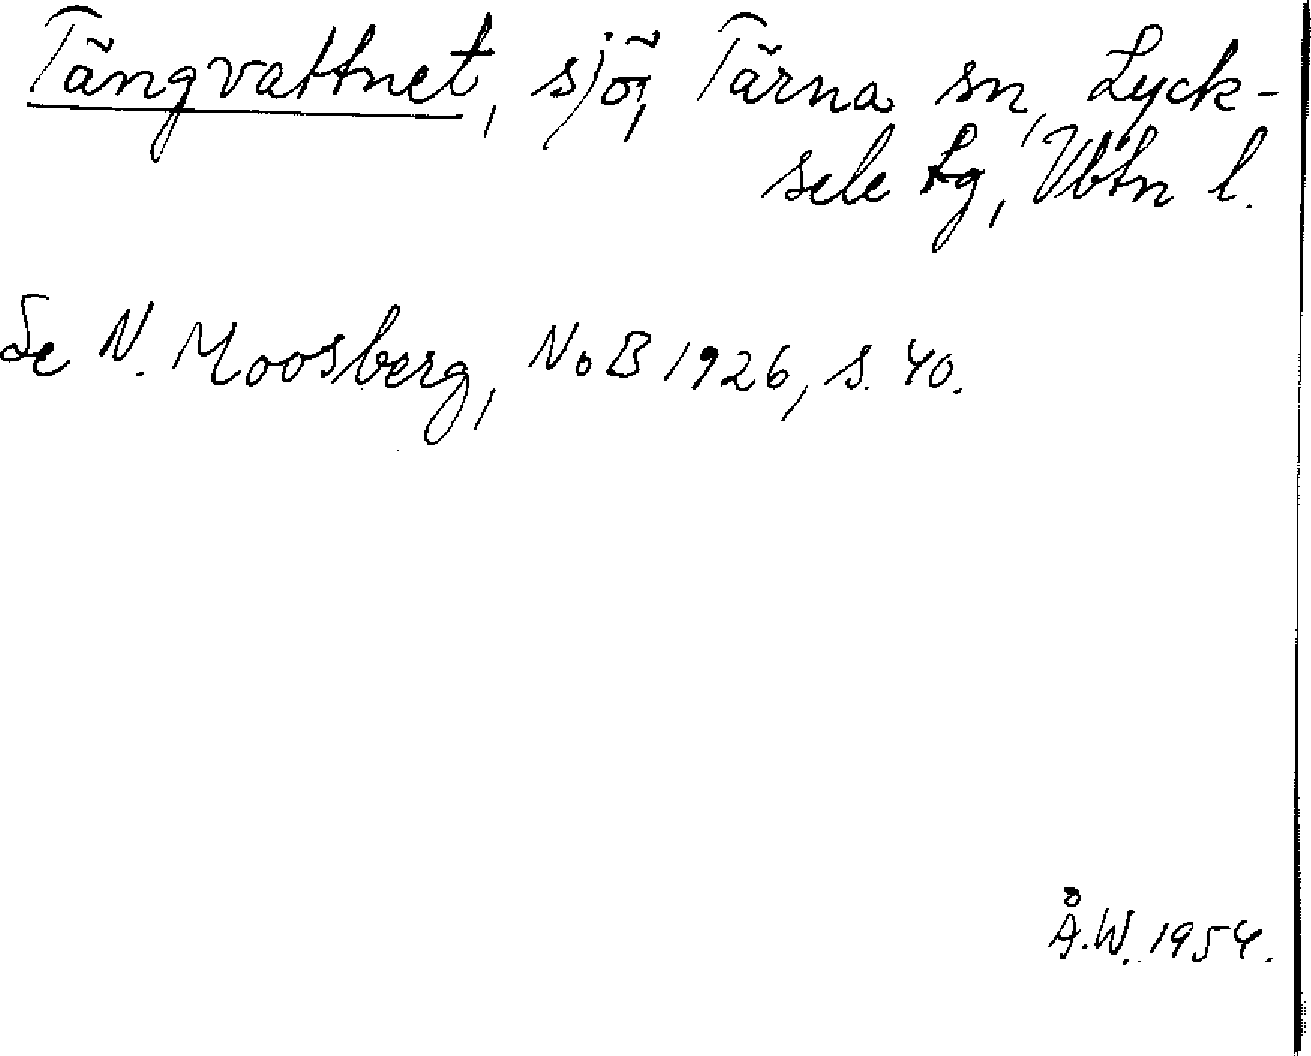 Tängvattnet, sjö, Tärna sn, Lyck-
sele lg, Vbtn l.
Se N. Moosberg, NoB 1926, s. 40.
Å.W. 1954.